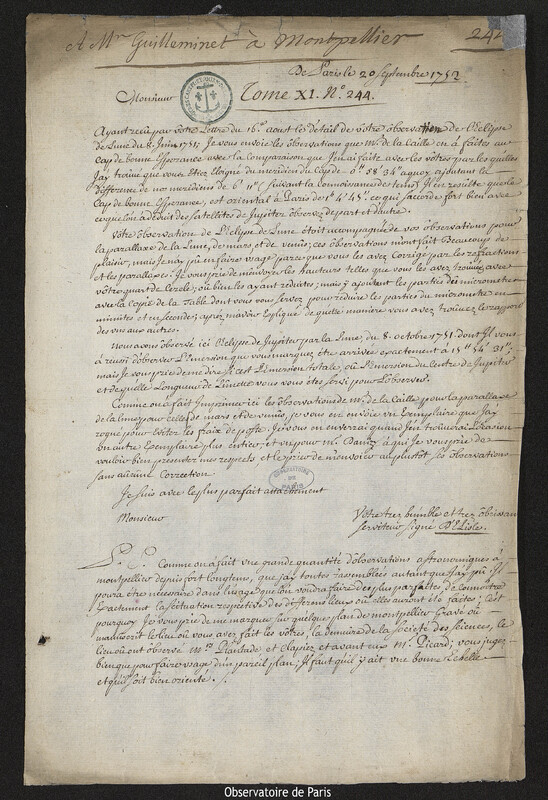 A Mr Guilleminet à Montpellier 244
De Paris le 20 Septembre 1752
Monsieur Tome XI. N.° 244.
Ayant reçu par votre Lettre du 16.e aoust le détail de votre observation de l'Eclipse
de Lune du 8. Juin 1751. Je vous envoie les observations que M. de la Caille en a faites au
Cap de bonne Esperance avec la comparaison que J'en ai faite avec les votres par les quelles
J'ay trouvé que vous Etiez Eloigné du meridien du Cap de 0h 58' 34" a quoy ajoutant la
difference de nos meridiens de 6' 11" (suivant la Connoissance des tems) Il en resulte que le
Cap de bonne Esperance, est oriental à Paris de 1h 4' 45". ce qui s'accorde fort bien avec
ce qu'on a déduit des satellites de Jupiter observez de part et d'autre.
Votre observation de L'Eclipse de Lune étoit accompagnée de vos observations pour
la parallaxe de la Lune, de mars et de venus; ces observations m'ont fait Beaucoup de
plaisir, mais Je n'ay pû en faire usage parce que vous les avez Corrigé par les refractions
et les parallaxes. Je vous prie de m'envoyer les hauteurs telles que vous les avez trouvées avec
votre quart de Cercle; où bien les ayant reduites; mais y ajoutant les parties du micrometre
avec la Copie de la Table dont vous vous servez pour réduire les parties du micrometre en
minutes et en secondes; après m'avoir Expliqué de quelle maniere vous avez trouvé le rapport
des uns aux autres.
Nous avons observé ici L'Eclipse de Jupiter par la Lune, du 8. octobre 1751. dont Il vous
a reussi d'observer L'Emersion que vous marquez être arrivée exactement à 15h 54' 31";
mais Je vous prie de me dire si c'est L'Emersion totale, où L'Emersion du Centre de Jupiter
et de quelle Longueur de Lunette vous vous êtes servi pour L'observer.
Comme on a fait Imprimer ici les observations de M. de la Caille pour la parallaxe
de la lune, pour celles de mars et de venus, je vous en envoie un Exemplaire que J'ay
rogné pour Eviter les fraix de poste. Je vous en enverrai quand J'en trouverai L'occasion
un autre Exemplaire plus entier, et un pour M. Danizy à qui Je vous prie de
vouloir bien presenter mes respects et le prier de m'envoier au plustôt ses observations
sans aucune Correction.
Je suis avec le plus parfait attachement
OBSERVATOIRE DE PARIS
Monsieur Votre tres humble et tres obeissant
serviteur signé D'Elisle.
P. S. Comme on a fait une grande quantité d'observations astronomiques à
montpellier depuis fort longtems, que J'ay toutes rassemblées autant que J'ay pû; Il
poura être necessaire dans l'usage que l'on voudra faire des plus parfaites de connoitre
Exactement la situation respective des differens lieux où elles auront été faites; C'est
pourquoy Je vous prie de me marquer sur quelque plan de montpellier Gravé où
manuscrit le lieu où vous avez fait les vôtres, la demeure de la societé des sciences, le
lieu où ont observé Mrs Plantade et Clapiez et avant eux M. Picard; vous jugez
bien que pour faire usage d'un pareil plan; Il faut qu'il y ait une bonne Echelle
et qu'il soit bien orienté ./.
Observatoire de Paris